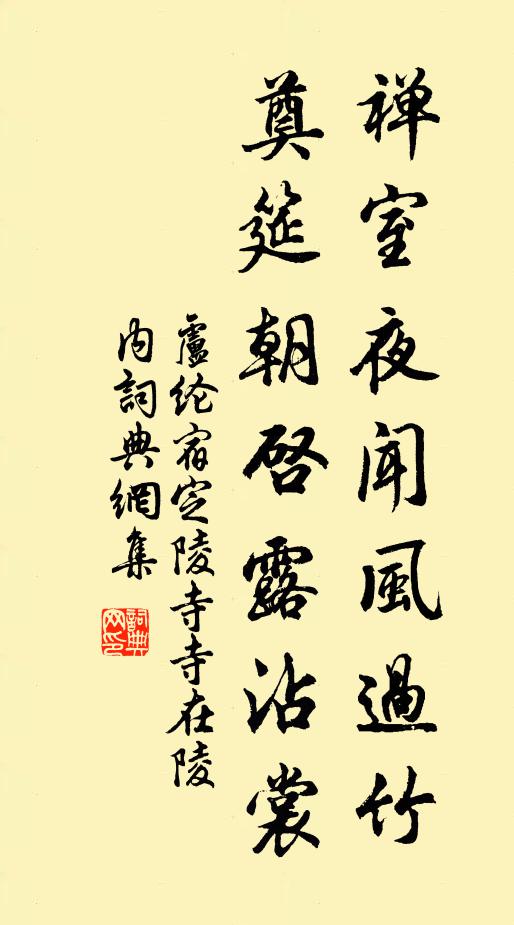 禅室夜闻風過竹
奠筵朝啓露沾裳
盧纶宿定陵寺寺在陵
内詞典網集
詞典网印